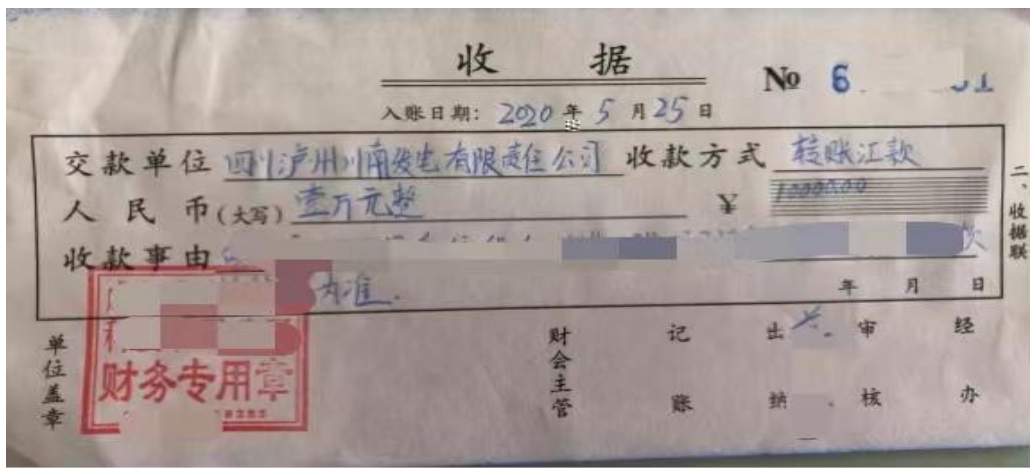 收 据
No 6
入账日期: 2020 年 5 月 25 日
交款单位 四川泸州川南发电有限责任公司 收款方式 转账汇款
人民币(大写) 壹万元整 ¥ 1000000
收款事由 款
为准.
年 月 日
二、收据联
单位盖章
财务专用章
财会主管
记账
出纳
审核
经办